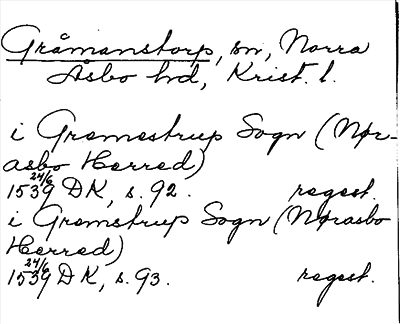 Gråmanstorp, sn, Norra
Åsbo hd, Krist. l.
i Gremestrup Sogn (Nør-
asbo Herred)
24/6
1539 DK, s. 92. regest.
i Gremstrup Sogn (Nørasbo
Herred)
24/6
1539 DK, s. 93. regest.